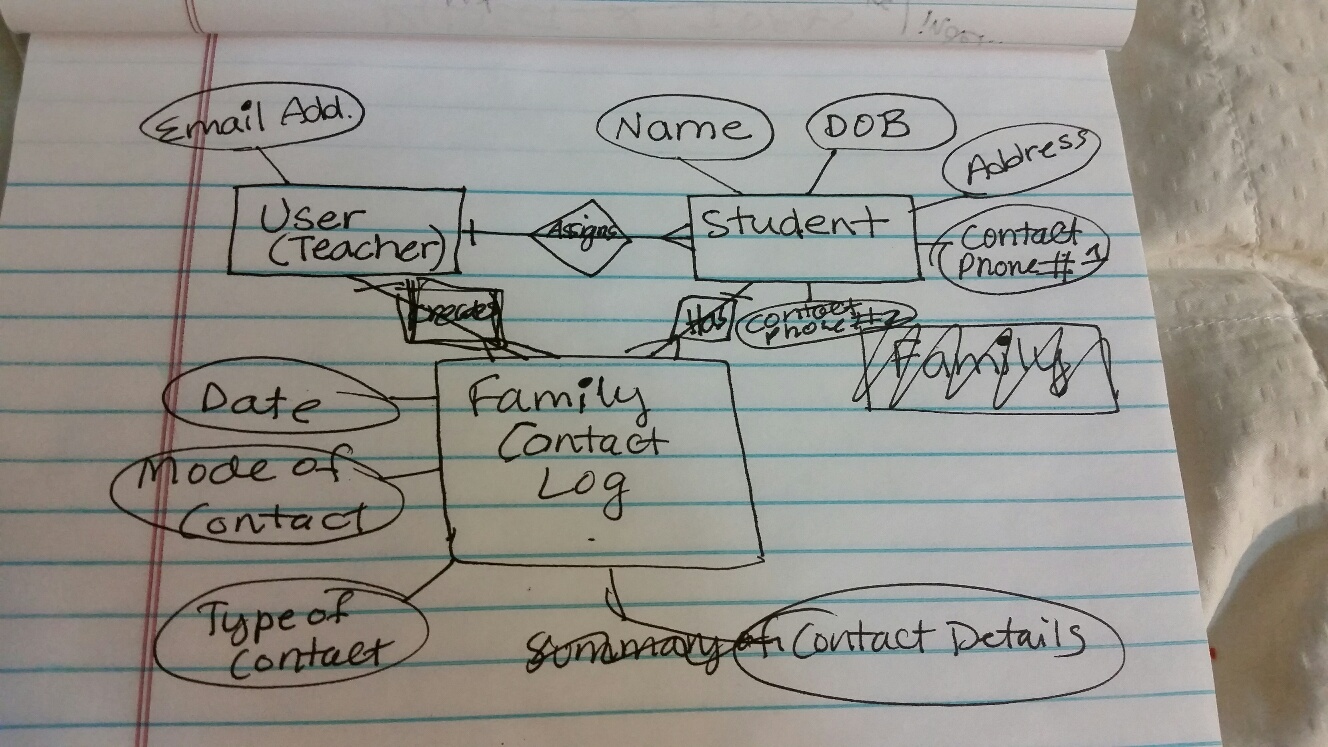 Email Add.
Name
DOB
Address
User
(Teacher)
Assigns
Student
Contact
Phone # 1
Creates
Has
Contact
Phone # 2
Family
Date
Family
Contact
Log
Mode of
Contact
Type of
Contact
Summary of
Contact Details